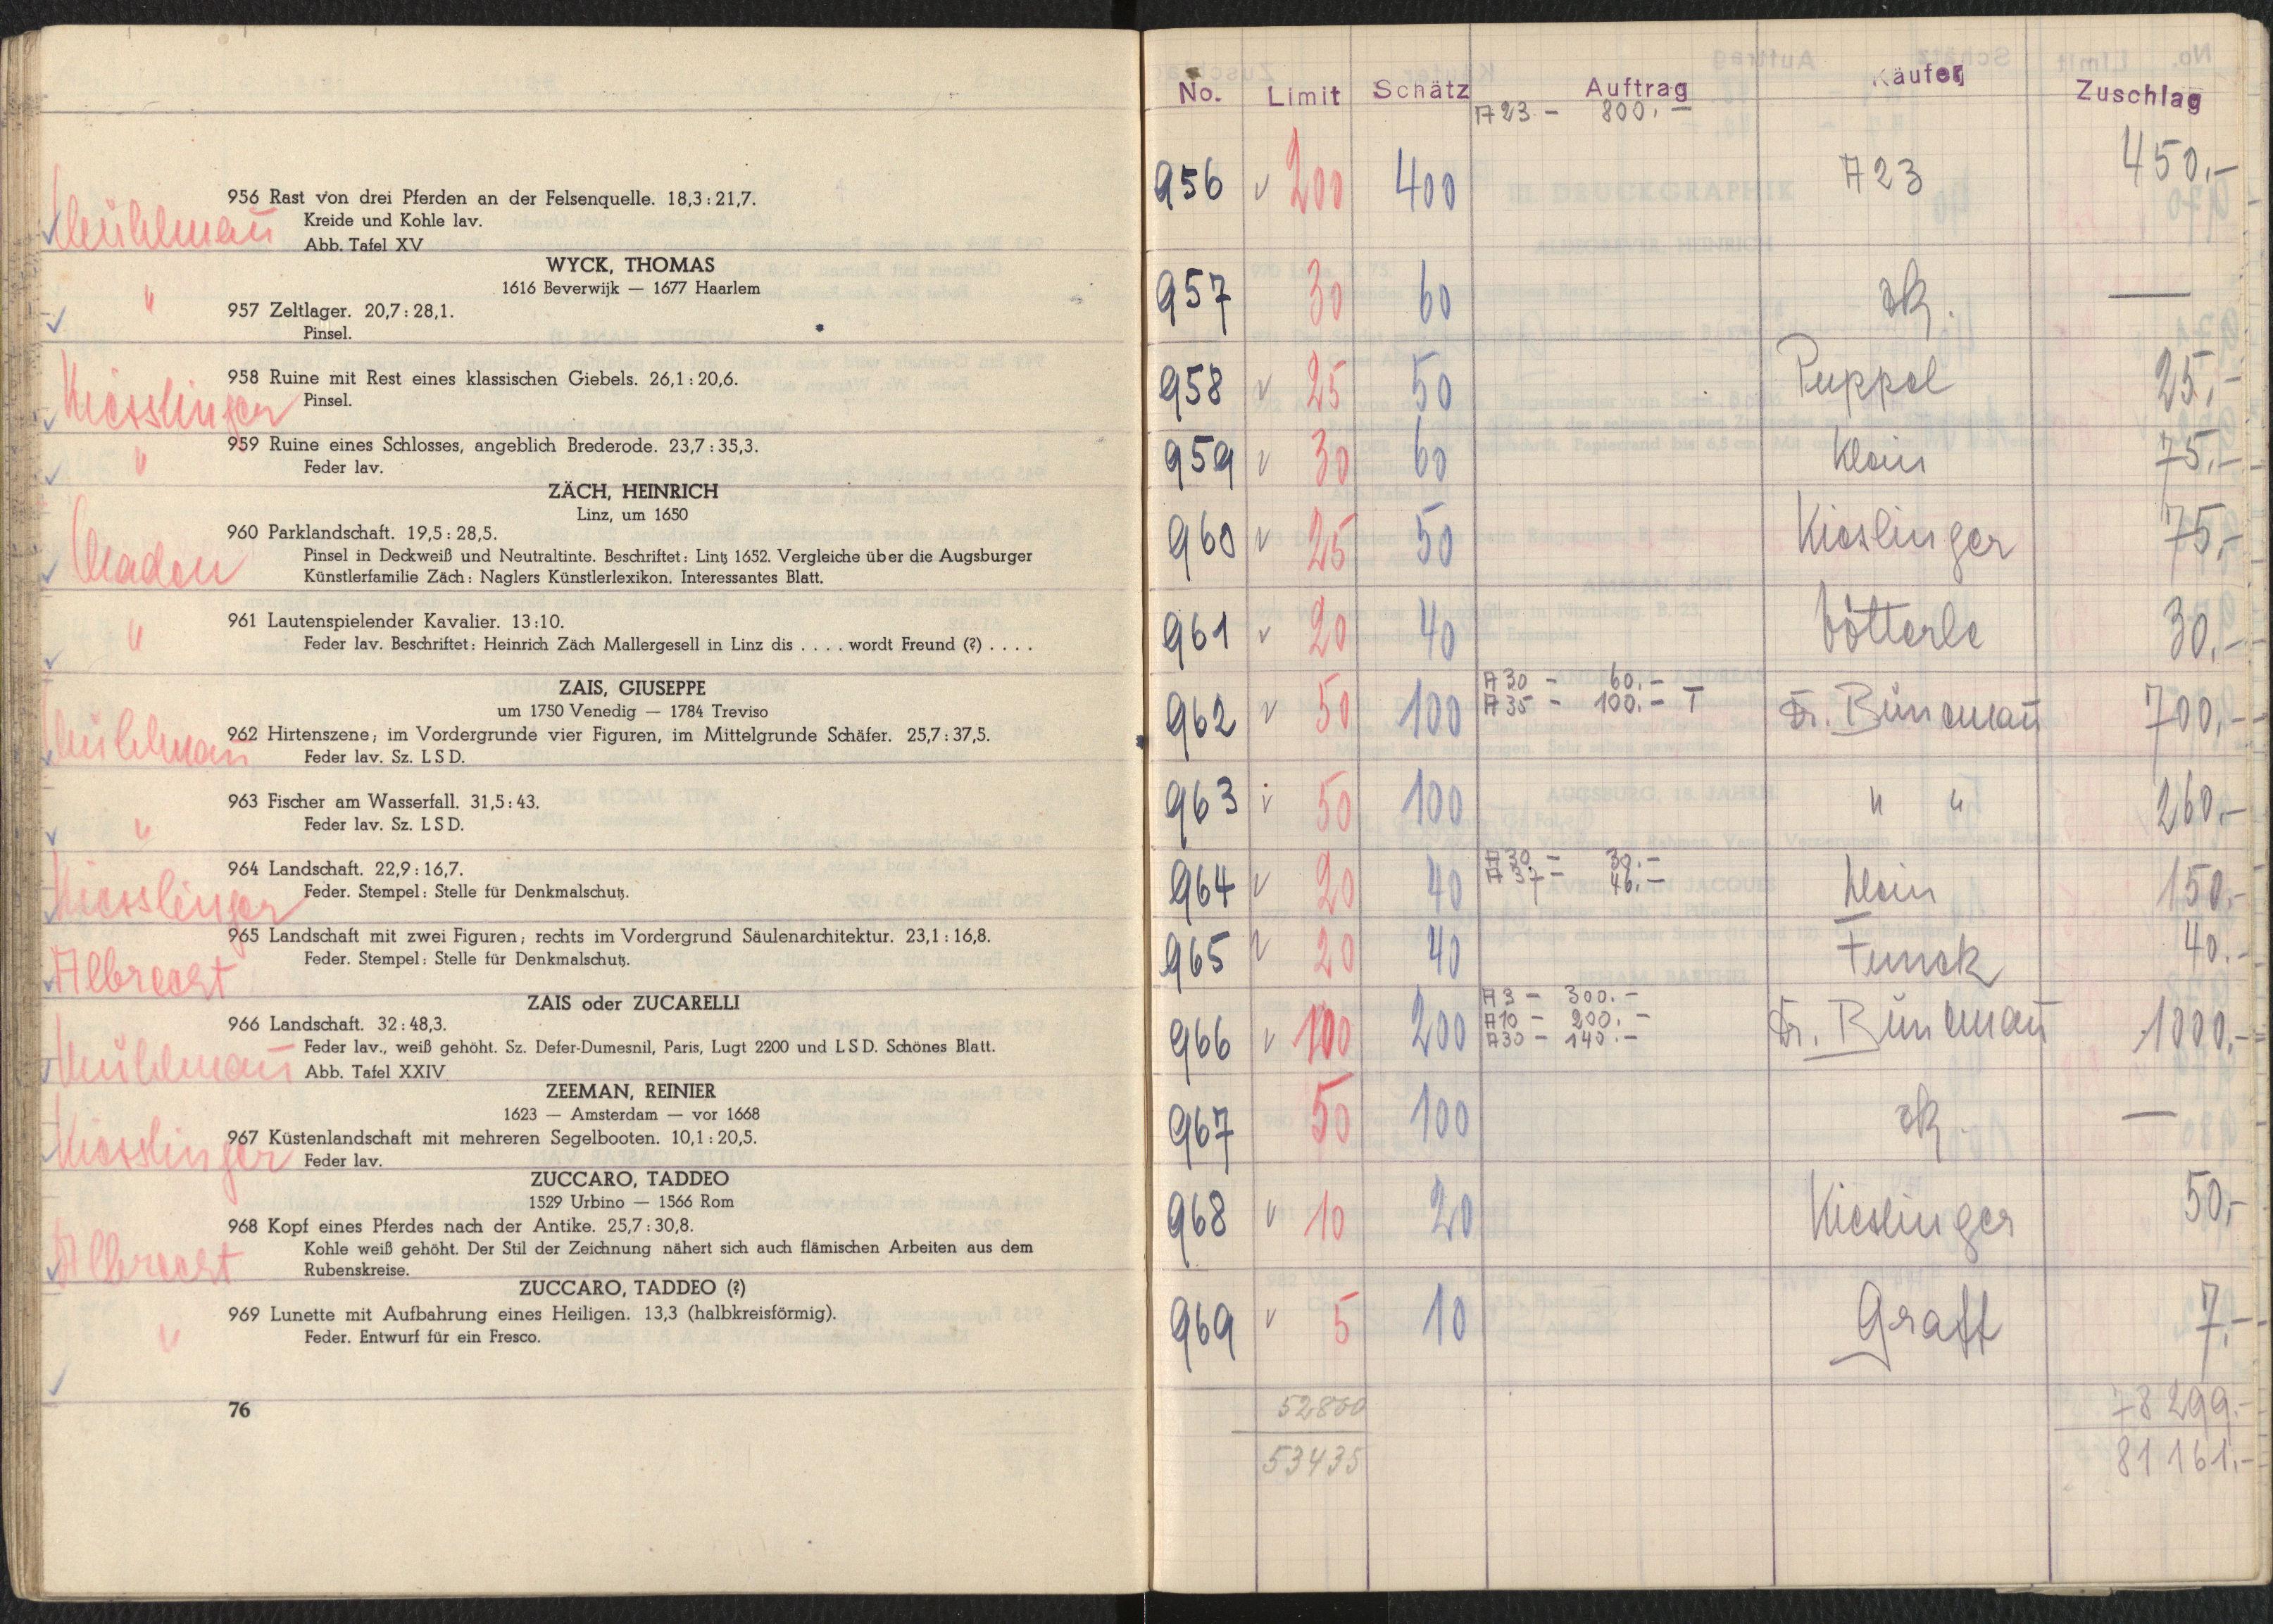 956 Rast von drei Pferden an der Felsenquelle. 18,3 : 21,7.
Kreide und Kohle lav.
Abb. Tafel XV
Mühlmann
WYCK, THOMAS
1616 Beverwijk — 1677 Haarlem
"
957 Zeltlager. 20,7 : 28,1.
Pinsel.
958 Ruine mit Rest eines klassischen Giebels. 26,1 : 20,6.
Kiesslinger Pinsel.
959 Ruine eines Schlosses, angeblich Brederode. 23,7 : 35,3.
" Feder lav.
ZÄCH, HEINRICH
Linz, um 1650
960 Parklandschaft. 19,5 : 28,5.
Pinsel in Deckweiß und Neutraltinte. Beschriftet: Lintz 1652. Vergleiche über die Augsburger
Künstlerfamilie Zäch: Naglers Künstlerlexikon. Interessantes Blatt.
961 Lautenspielender Kavalier. 13 : 10.
" Feder lav. Beschriftet: Heinrich Zäch Mallergesell in Linz dis . . . . wordt Freund (?) . . . .
ZAIS, GIUSEPPE
um 1750 Venedig — 1784 Treviso
962 Hirtenszene; im Vordergrunde vier Figuren, im Mittelgrunde Schäfer. 25,7 : 37,5.
Mühlmann Feder lav. Sz. L S D.
963 Fischer am Wasserfall. 31,5 : 43.
" Feder lav. Sz. L S D.
964 Landschaft. 22,9 : 16,7.
Kiesslinger Feder. Stempel: Stelle für Denkmalschutz.
965 Landschaft mit zwei Figuren; rechts im Vordergrund Säulenarchitektur. 23,1 : 16,8.
Albrecht Feder. Stempel: Stelle für Denkmalschutz.
ZAIS oder ZUCARELLI
966 Landschaft. 32 : 48,3.
Feder lav., weiß gehöht. Sz. Defer-Dumesnil, Paris, Lugt 2200 und L S D. Schönes Blatt.
Mühlmann Abb. Tafel XXIV
ZEEMAN, REINIER
1623 — Amsterdam — vor 1668
967 Küstenlandschaft mit mehreren Segelbooten. 10,1 : 20,5.
Kiesslinger Feder lav.
ZUCCARO, TADDEO
1529 Urbino — 1566 Rom
968 Kopf eines Pferdes nach der Antike. 25,7 : 30,8.
Kohle weiß gehöht. Der Stil der Zeichnung nähert sich auch flämischen Arbeiten aus dem
Albrecht Rubenskreise.
ZUCCARO, TADDEO (?)
969 Lunette mit Aufbahrung eines Heiligen. 13,3 (halbkreisförmig).
" Feder. Entwurf für ein Fresco.
76
No. Limit Schätz Auftrag Käufer Zuschlag
A 23 — 800.—
956 v 200 400 A 23 450,—
957 30 60 —
958 v 25 50 Puppel 25,—
959 v 30 60 Klein 75,—
960 v 25 50 Kieslinger 75,—
961 v 20 40 Vötterle 30,—
A 30 — 60.—
962 v 50 100 A 35 — 100.— T Dr. Bünemann 700,—
963 v 50 100 " " 260,—
A 30 — 30.—
964 v 20 40 A 37 — 46.— Klein 150,—
965 v 20 40 Funck 40.—
A 3 — 300.—
A 10 — 200.—
966 v 100 200 A 30 — 140.— Dr. Bünemann 1000,—
967 50 100 —
968 v 10 20 Kieslinger 50,—
969 v 5 10 Graff 7.—
52800 78 299.—
53435 81 161.—